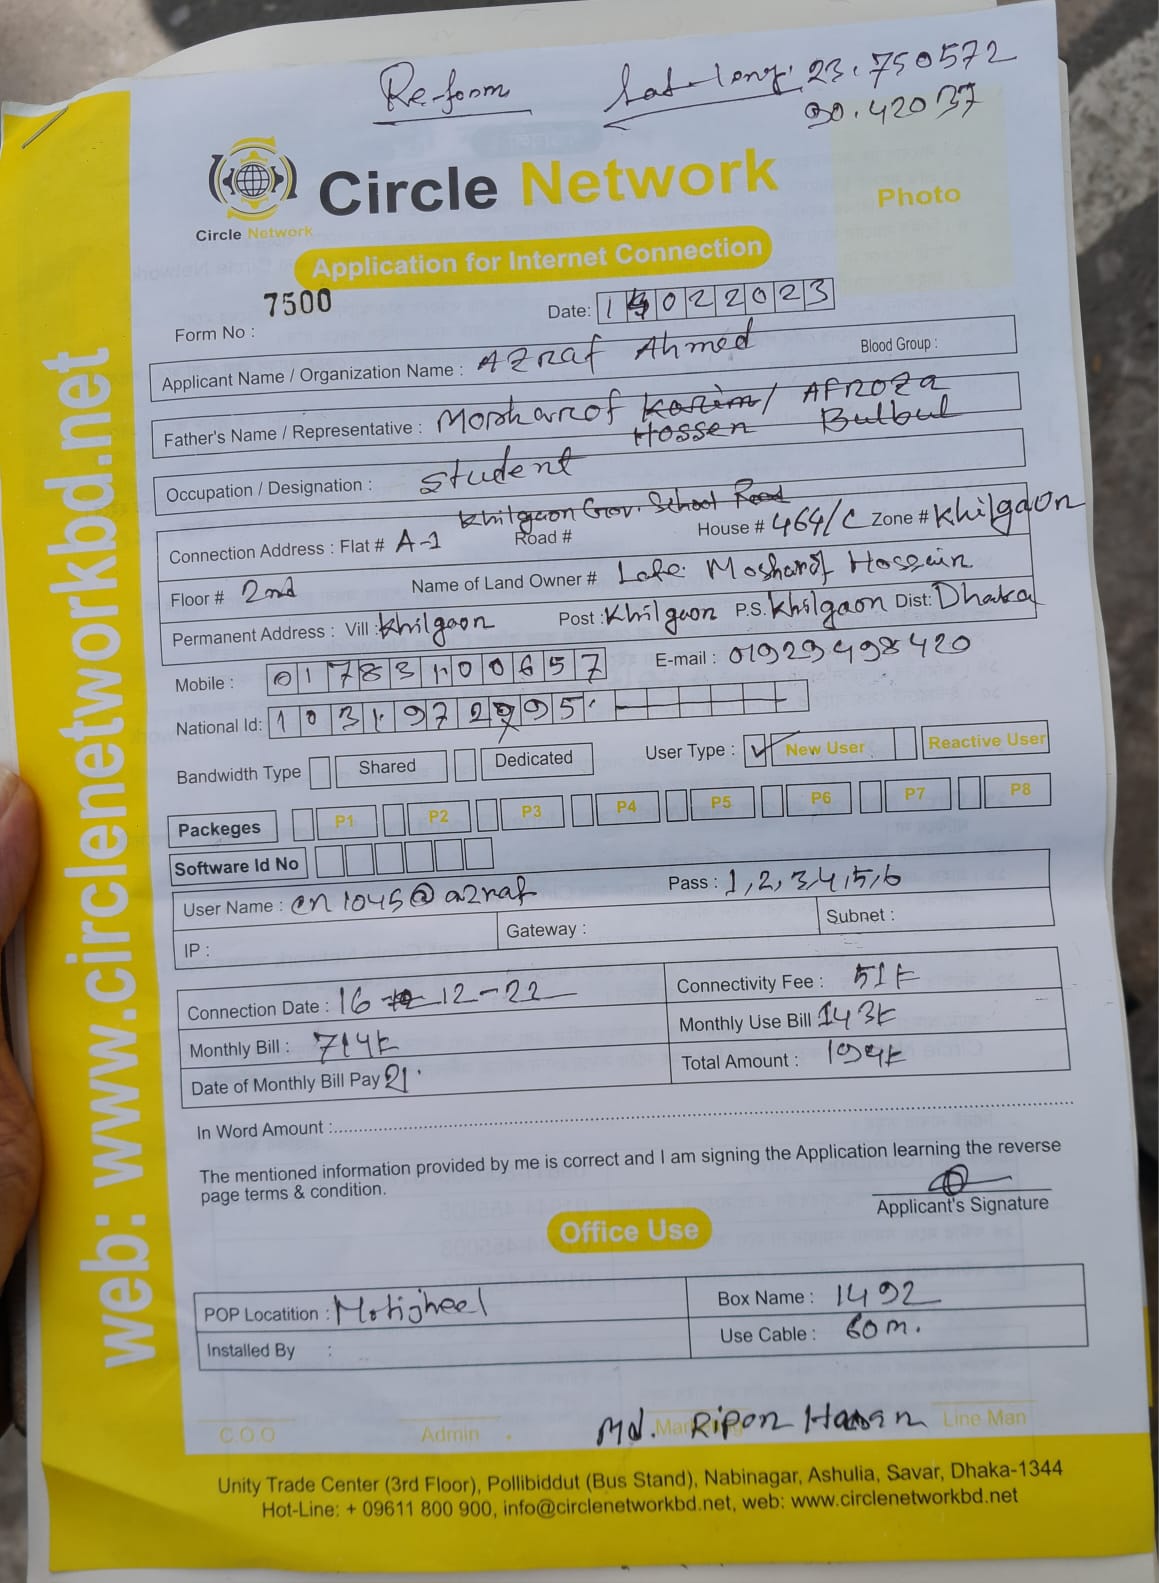 Re-form Lat-long: 23.750572
90.42037
Circle Network
Circle Network
Photo
Application for Internet Connection
Form No : 7500
Date: 14022023
Applicant Name / Organization Name : AZraf Ahmed Blood Group :
Father's Name / Representative : Mosharof Karim/ AFROZA
Hossen Bulbul
Occupation / Designation : Student
Khilgaon Gov. School Road
Connection Address : Flat # A-1 Road # House # 464/C Zone # Khilgaon
Floor # 2nd Name of Land Owner # Late. Mosharof Hossain
Permanent Address : Vill : Khilgaon Post : Khilgaon P.S. Khilgaon Dist: Dhaka
Mobile : 01783100657 E-mail : 01929498420
National Id: 1031972795
Bandwidth Type Shared Dedicated User Type : ✓ New User Reactive User
Packeges P1 P2 P3 P4 P5 P6 P7 P8
Software Id No
User Name : cn1045@azraf Pass : 1,2,3,4,5,6
IP : Gateway : Subnet :
Connection Date : 16 12-22 Connectivity Fee : 51k
Monthly Bill : 714k Monthly Use Bill 143k
Date of Monthly Bill Pay 21. Total Amount : 194k
In Word Amount :
The mentioned information provided by me is correct and I am signing the Application learning the reverse
page terms & condition.
Applicant's Signature
Office Use
POP Locatition : Motijheel Box Name : 1492
Installed By : Use Cable : 60m.
C.O.O Admin Md. Ripon Hasan Line Man
Unity Trade Center (3rd Floor), Pollibiddut (Bus Stand), Nabinagar, Ashulia, Savar, Dhaka-1344
Hot-Line: + 09611 800 900, info@circlenetworkbd.net, web: www.circlenetworkbd.net
web: www.circlenetworkbd.net